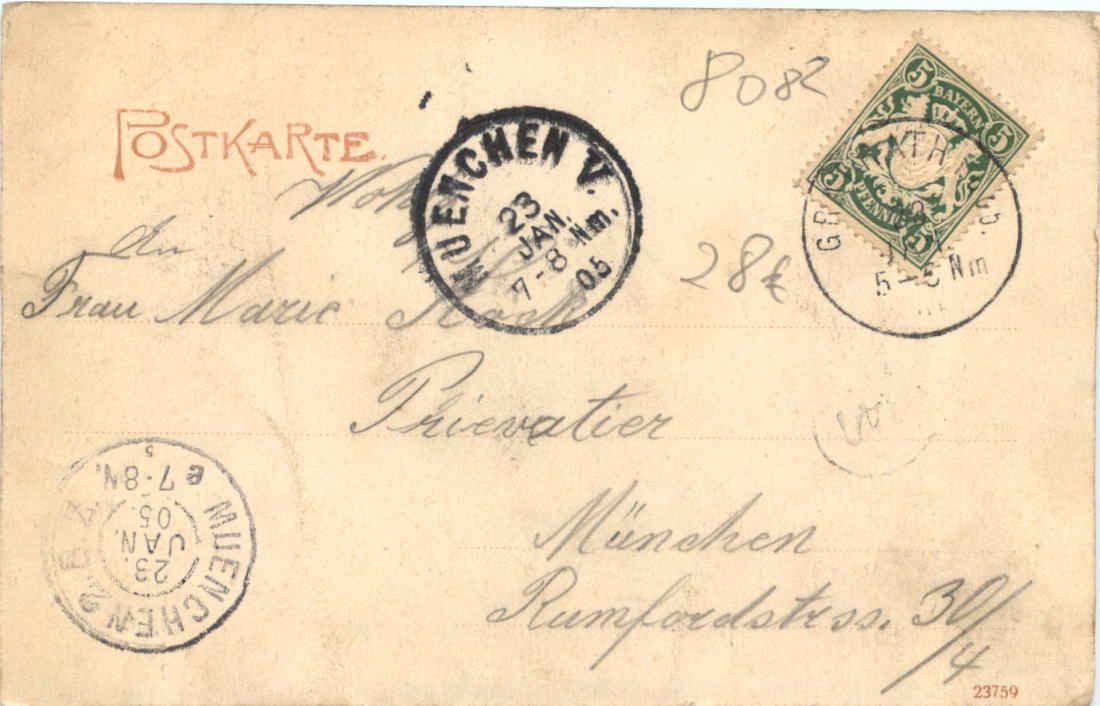 8082
POSTKARTE.
5 BAYERN 5
5 PFENNIG 5
5-6 Nm
MUENCHEN V.
23
JAN.
7-8 Nm.
05
An
Frau Marie
28€
Prievatier
München
Rumfordstrss. 30/4
MUENCHEN 2.
23.
JAN.
05.
7-8N.
23759